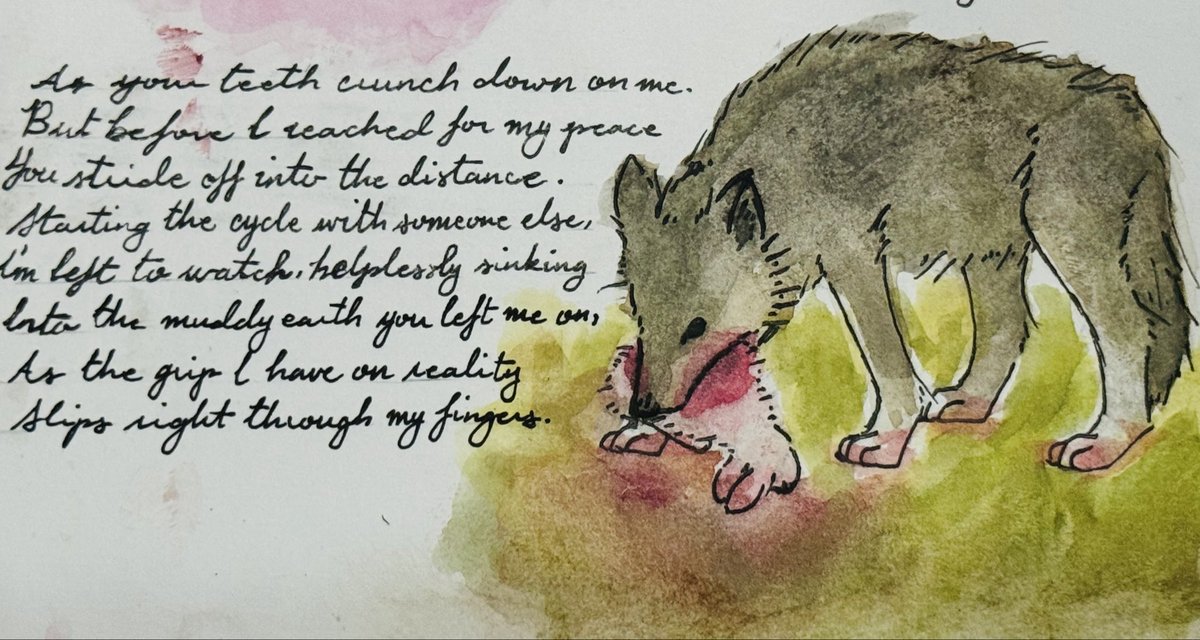 As your teeth crunch down on me.
But before I reached for my peace
You stride off into the distance.
Starting the cycle with someone else,
I'm left to watch, helplessly sinking
Into the muddy earth you left me on,
As the grip I have on reality
Slips right through my fingers.